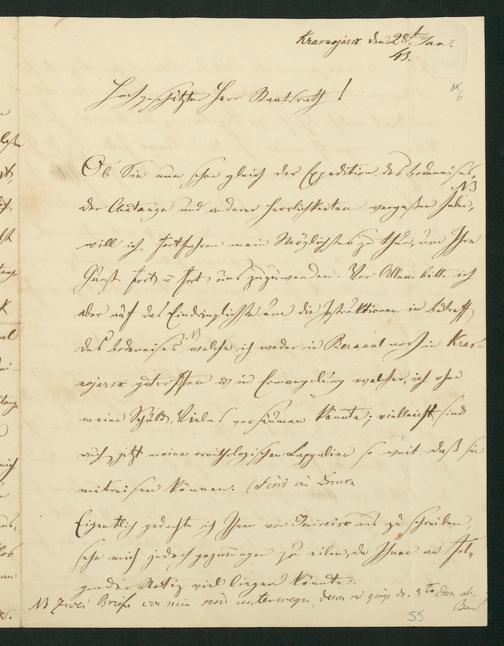 Krasnojarsk den 28t Jan.
43.
Hochgeschätzter Herr Staatsrath!
Ob Sie nun schon gleich der Expedition des Bodeneises,
der Austange und anderer Herrlichkeiten vergessen haben,
will ich fortfahren mein Möglichstes zu thun, um Ihre
Gunst fort u fort uns zuzuwenden. Vor Allem bitte ich
aber auf das Eindringlichste um die Instruktionen in betreff
des Bodeneises, welche ich weder in noch in Kras-
nojarsk getroffen u in Ermangelung welcher, ich ohne
meine Schuld, Vieles versäumen könnte; vielleicht sind
auch jetzt meine ornithologischen Lappalien so weit, daß sie
mitreisen können. (Sind in
Eigentlich gedachte ich Ihnen von aus zu schreiben,
sehe mich jedoch gezwungen zu eilen, da Ihnen an fol-
gender Notiz viel liegen könnte.
NB Zwei Briefe von mir sind unterwegs, denn es ging d. 3te
55